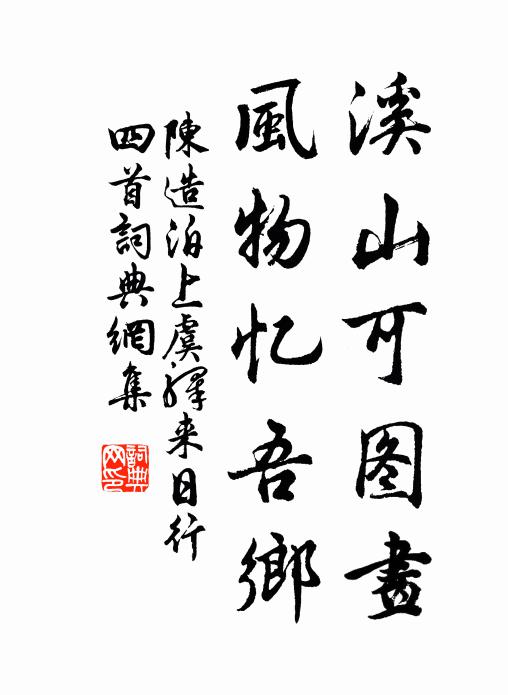 溪山可图畫
風物忆吾鄉
陳造泊上虞驛来日行
四首詞典網集
詞典网印